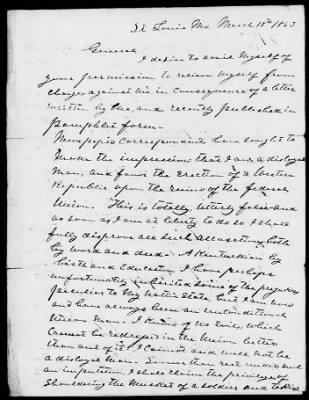 St Louis Mo. March 18th 1863
General
I desire to avail myself of
your permission to relieve myself from
charges against me in consequence of a letter
written by me, and recently published in
pamphlet form.
Newspaper correspondents have sought to
make the impression that I am a disloyal
man, and favor the erection of a Western
Republic upon the ruins of the federal
Union. This is totally, utterly false and
as soon as I am at liberty to do so I shall
fully disprove all such accusations both
by word and deed. A Kentuckian by
birth and Education I have perhaps
unfortunately inherited some of the prejudices
peculiar to my Native State, but I am now
and have always been an unconditional
Union Man. I know of no Evils, which
cannot be redressed in the Union better
than out of it. I cannot and will not be
a disloyal man. Sooner than rest under such
an imputation I shall claim the privilege of
shouldering the musket of a soldier and